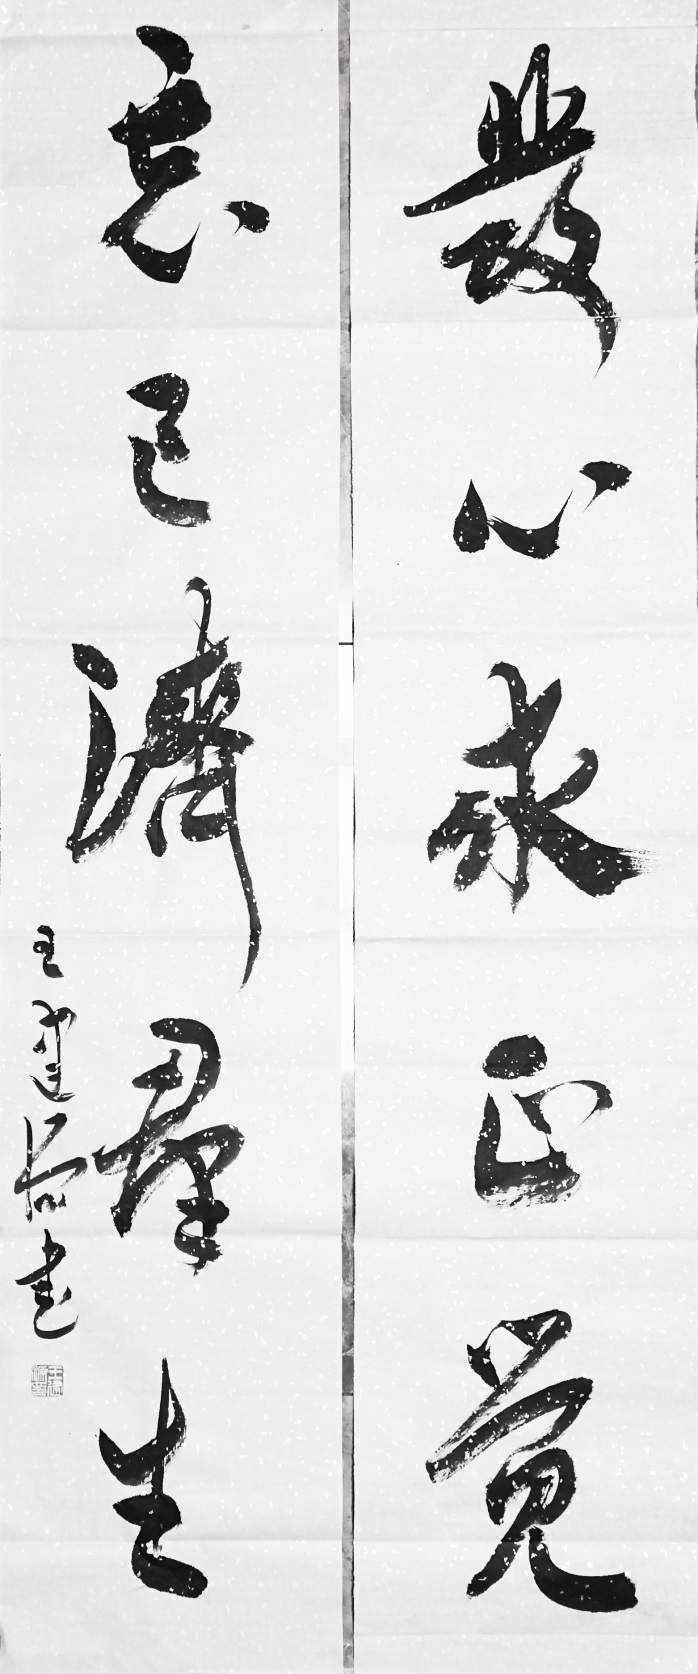 發心求正覺
忘己濟群生
王建
書